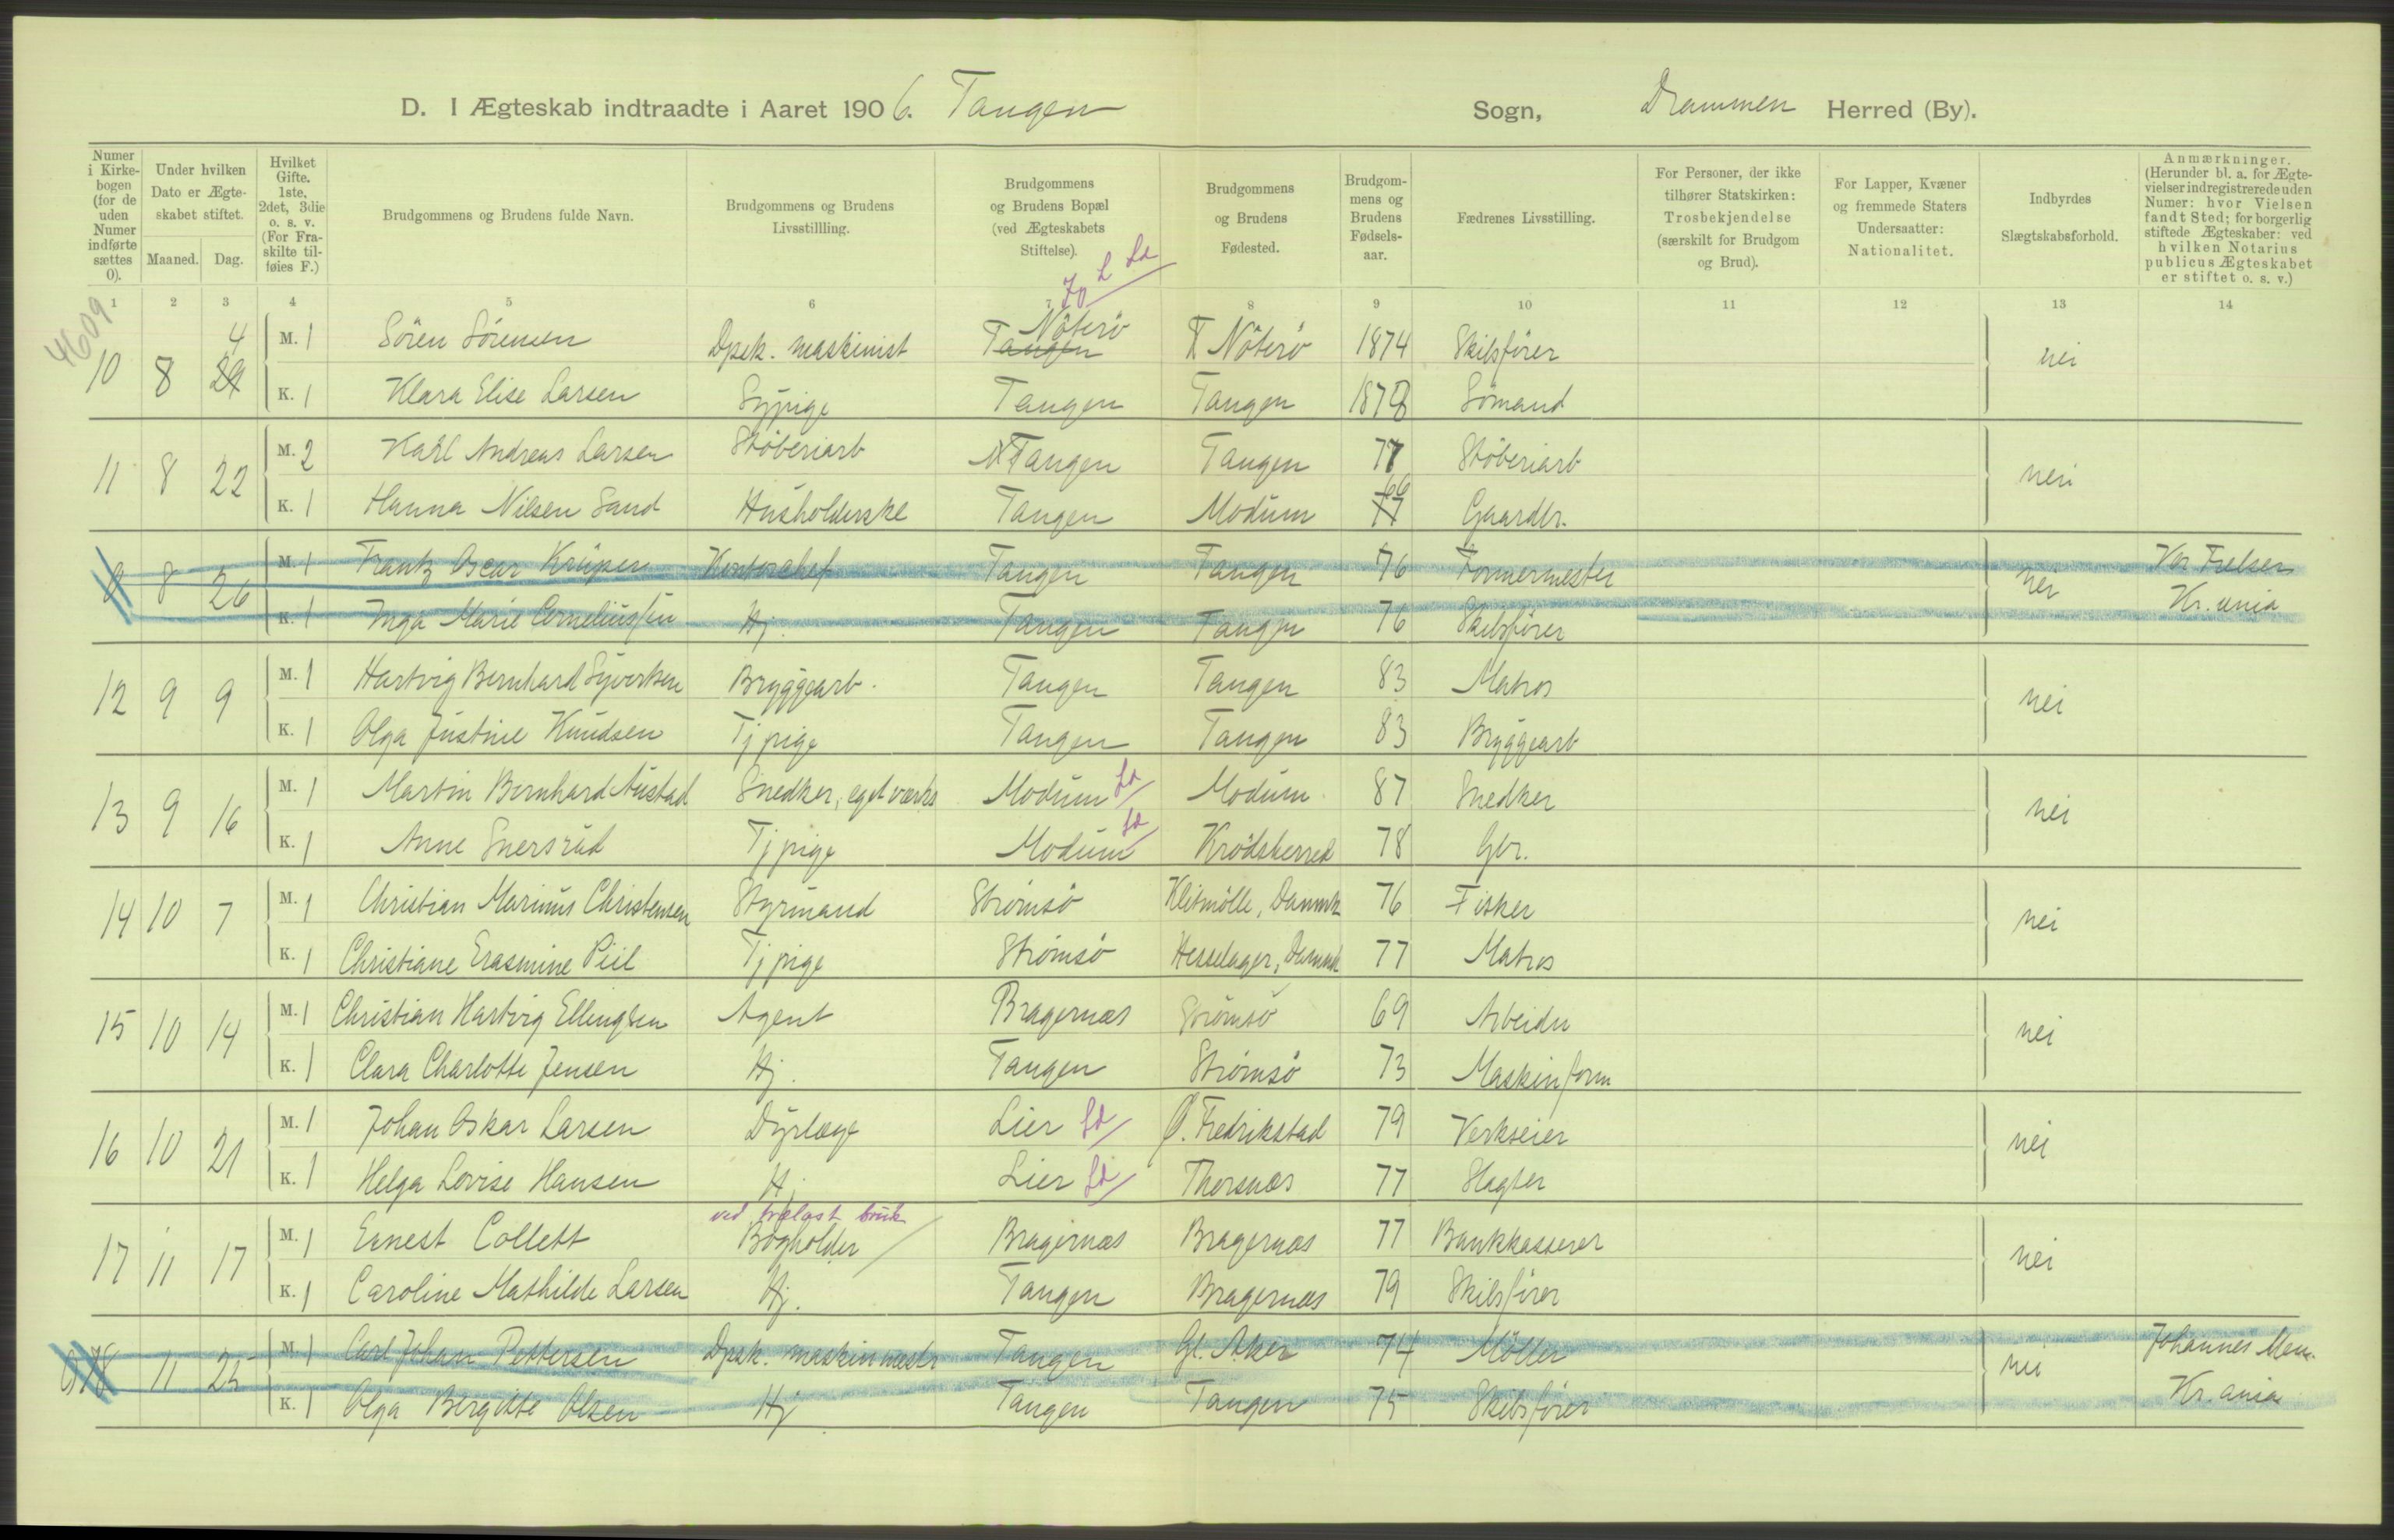 D. I Ægteskab indtraadte i Aaret 1906. Tangen Sogn, Drammen Herred (By).
Numer i Kirkebogen (for de uden Numer indførte sættes 0).
Under hvilken Dato er Ægteskabet stiftet.
Maaned. Dag.
Hvilket Gifte. 1ste, 2det, 3die o. s. v. (For Fraskilte tilføies F.)
Brudgommens og Brudens fulde Navn.
Brudgommens og Brudens Livsstillling.
Brudgommens og Brudens Bopæl (ved Ægteskabets Stiftelse).
Brudgommens og Brudens Fødested.
Brudgommens og Brudens Fødselsaar.
Fædrenes Livsstilling.
For Personer, der ikke tilhører Statskirken: Trosbekjendelse (særskilt for Brudgom og Brud).
For Lapper, Kvæner og fremmede Staters Undersaatter: Nationalitet.
Indbyrdes Slægtskabsforhold.
Anmærkninger. (Herunder bl. a. for Ægtevielser indregistrerede uden Numer: hvor Vielsen fandt Sted; for borgerlig stiftede Ægteskaber: ved hvilken Notarius publicus Ægteskabet er stiftet o. s. v.)
1 2 3 4 5 6 7 8 9 10 11 12 13 14
4609.
10 8 4 M. 1 Sören Sörensen Dpsk. maskinist Tangen Nöterö Nöterö 1874 Skibsfører nei
K. 1 Klara Elise Larsen Sypige Tangen Tangen 1878 Sömand
11 8 22 M. 2 Karl Andreas Larsen Støberiarb Tangen Tangen 77 Støberiarb nei
K. 1 Hanna Nilsen Sand Husholderske Tangen Modum 77 66 Gaardbr.
0 8 26 M. 1 Frantz Oscar Krüper Kontorchef Tangen Tangen 76 Formermester nei Vor Frelsers
K. 1 Inga Marie Corneliussen Hj. Tangen Tangen 76 Skibsfører Kr.ania
12 9 9 M. 1 Hartvig Bernhard Syvertsen Bryggearb. Tangen Tangen 83 Matros nei
K. 1 Olga Justine Knudsen Tjpige Tangen Tangen 83 Bryggearb
13 9 16 M. 1 Martin Bernhard Austad Snedker, eget værks Modum Ld Modum 87 Snedker nei
K. 1 Anne Snersrud Tjpige Modum Ld Krödsherred 78 Gbr.
14 10 7 M. 1 Christian Marinus Christensen Styrmand Strømsö Klitmölle, Danmk 76 Fisker nei
K. 1 Christiane Erasmine Piil Tjpige Strømsö Hesselager, Danmk 77 Matros
15 10 14 M. 1 Christian Hartvig Ellingsen Agent Bragernæs Strømsö 69 Arbeider nei
K. 1 Clara Charlotte Jensen Hj. Tangen Strømsö 73 Maskinform
16 10 21 M. 1 Johan Oskar Larsen Dyrlæge Lier Ld Ø. Fredrikstad 79 Verkseier nei
K. 1 Helga Lovise Hansen Hj. Lier Ld Thorsnæs 77 Slagter
ved trælast bruk
17 11 17 M. 1 Ernest Collett Bogholder Bragernæs Bragernæs 77 Bankkasserer nei
K. 1 Caroline Mathilde Larsen Hj. Tangen Bragernæs 79 Skibsfører
0 18 11 25 M. 1 Carl Johan Pettersen Dpsk. maskinmestr Tangen Gl. Aker 74 Möller nei Johannes Men.
K. 1 Olga Bergitte Olsen Hj Tangen Tangen 75 Skibsfører Kr.ania